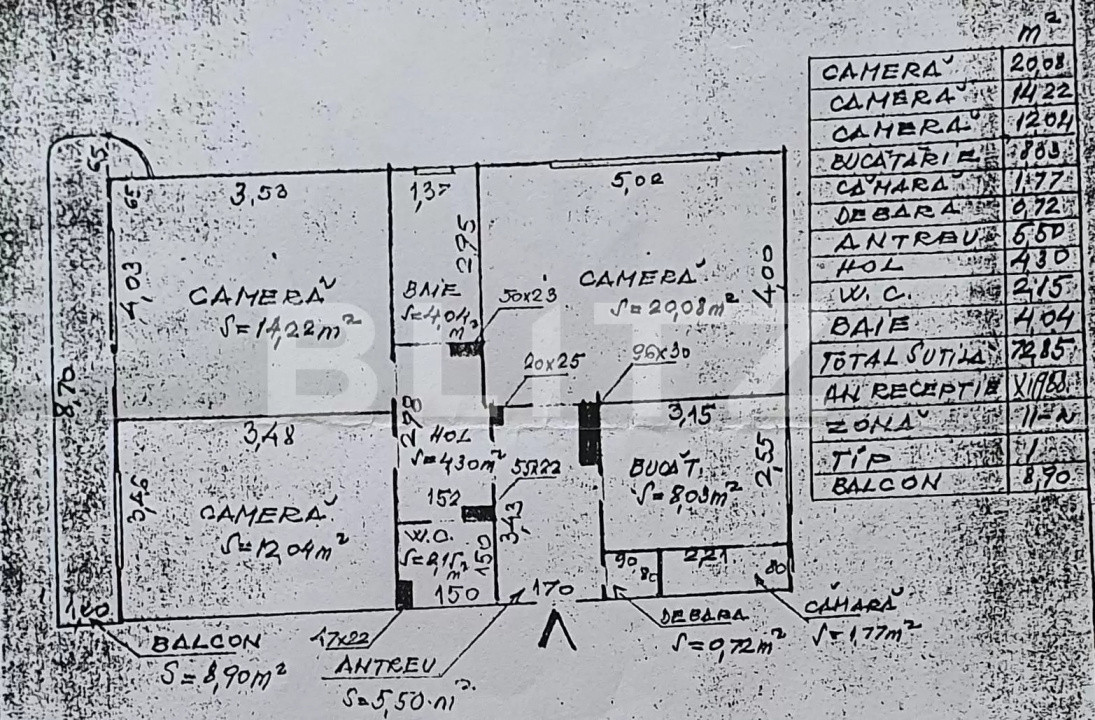 m²
CAMERĂ 20,08
CAMERĂ 14,22
CAMERĂ 12,04
BUCĂTĂRIE 8,03
CĂMARĂ 1,77
DEBARA 0,72
ANTREU 5,50
HOL 4,30
W.C. 2,15
BAIE 4,04
TOTAL SUTILĂ 72,85
AN RECEPTIE
ZONĂ II-N
TIP 1
BALCON 8,90
65
65
3,53
1,37
5,02
4,03
295
4,00
CAMERĂ
S=14,22m²
BAIE
S=4,04 m²
50x23
CAMERĂ
S=20,08m²
BLITZ
20x25
96x30
8,70
3,48
278
HOL
S=4,30m²
3,15
3,46
CAMERĂ
S=12,04m²
152
55x22
3,43
BUCĂT.
S=8,03m²
2,55
W.C.
S=2,15m²
150
150
170
90
80
2,21
80
BALCON
S=8,90m²
47x22
ANTREU
S=5,50m²
DEBARA
S=0,72m²
CĂMARĂ
S=1,77m²